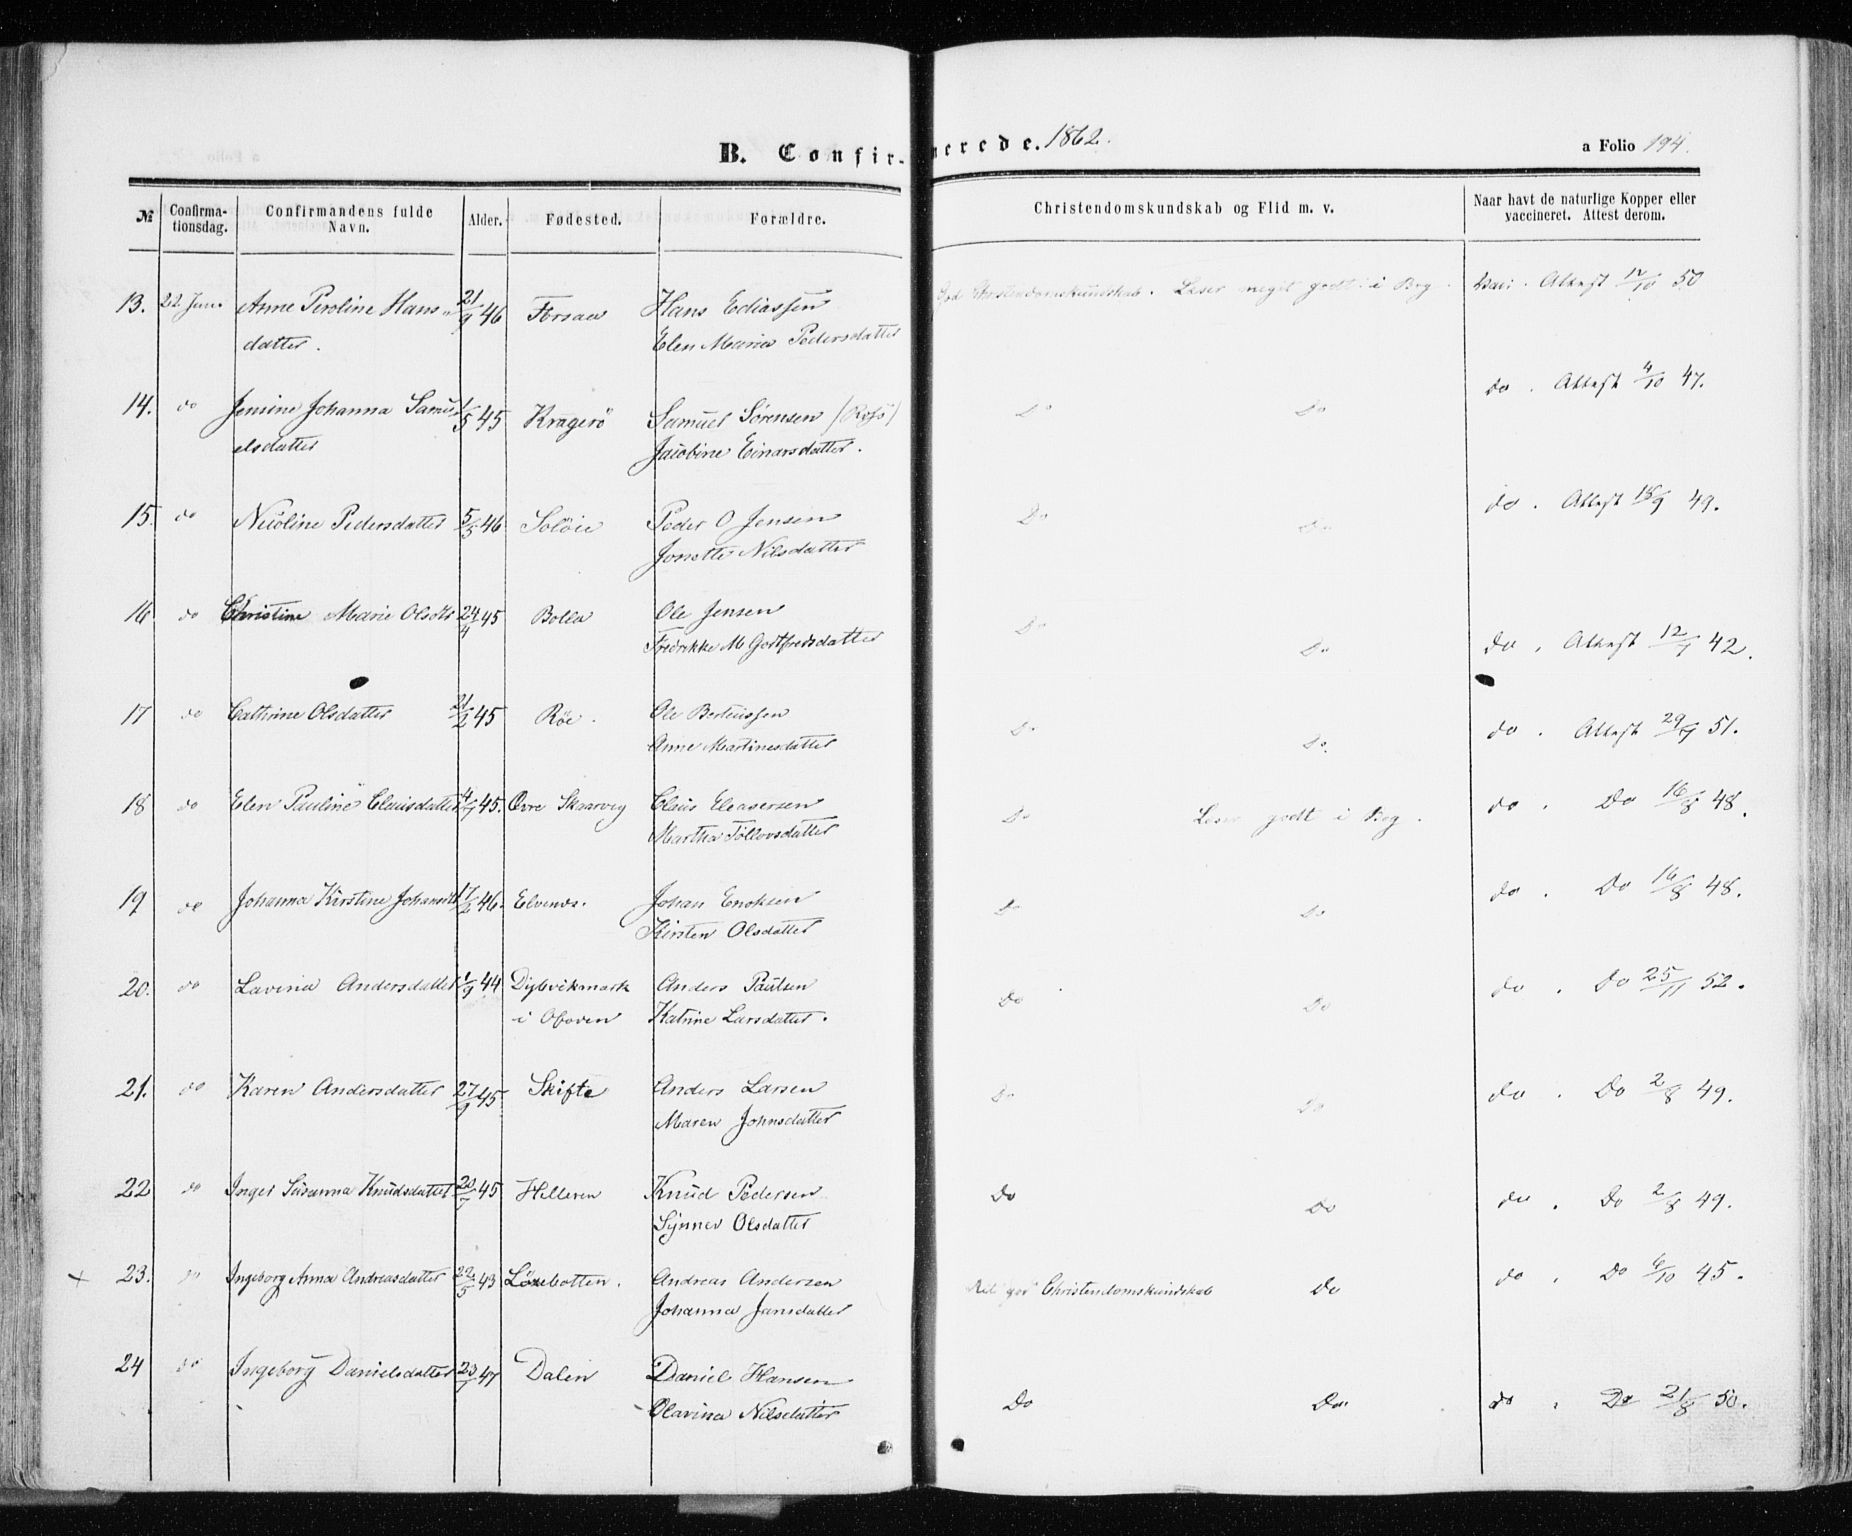 B. Confirmerede. 1862.
a Folio 194.
№ Confirmationsdag. Confirmandens fulde Navn. Alder. Fødested. Forældre. Christendomskundskab og Flid m. v. Naar havt de naturlige Kopper eller vaccineret. Attest derom.
13. 22 Juni Anne Peroline Hans 21/9 46 Forsaa Hans Ediassen God Christendomskundskab. Læser meget godt i Bog. Vacc. Attest 12/10 50
datter. Elen Maria Pedersdatter
14. do Jensine Johanna Samu 1/5 45 Kragerö Samuel Sörensen Do Do do. Attest 4/10 47.
elsdatter Jacobine Einarsdatter.
15. do Nicoline Pedersdatter 5/5 46 Solöie Peder O Jensen Do Do do. Attest 18/9 49.
Jonette Nilsdatter
16 do Christine Marie Olsdtr 24/4 45 Bolla Ole Jensen Do Do do. Attest 12/1 42.
Fredrikke M Godtfredsdatter
17 do Cathrine Olsdatter 21/2 45 Röe. Ole Berteussen Do Do. do. Attest 29/9 51.
Anne Martinesdatter
18 do Elen Pauline Clausdatter 4/7 45. Övre Skaarvig Claus Eleasersen Do Læser godt i Bog. do. Do 16/8 48.
Martha Tollevsdatter
19 do Johanna Kirstine Johansdtr 17/2 46. Elvenes. Johan Enoksen Do Do do. Do 16/8 48.
Kirsten Olsdatter
20. do Lavina Andersdatter 1/9 44 Dybvikmark Anders Paulsen Do Do do. Do 25/11 52.
i Ofoten Katrine Larsdatter.
21. do Karen Andersdatter 27/9 45 Skifte Anders Larsen Do Do do. Do 2/8 49.
Maren Johnsdatter
22 do Inger Susanna Knudsdatter 20/7 45 Helleren Knud Pedersen Do Do do. Do 2/8 49.
Synnev Olsdatter
+ 23. do Ingeborg Anna Andreasdatter 22/5 43 Löxebotten. Andreas Andersen Christendomskundskab Do do. Do 6/10 45.
Johanna Jansdatter
24 do Ingeborg Danielsdatter 23/7 47 Dalen Daniel Hansen Do Do do. Do 21/8 50.
Olavina Nilsdatter